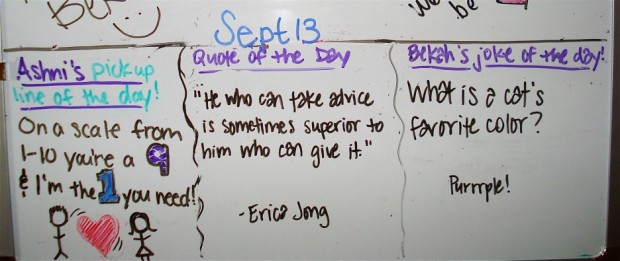 Sept 13
we
be
Ashni's pick up
line of the day!
On a scale from
1-10 you're a 9
& I'm the 1 you need!
Quote of the Day
"He who can take advice
is sometimes superior to
him who can give it."
-Erica Jong
Bekah's joke of the day!
What is a cat's
favorite color?
Purrrple!